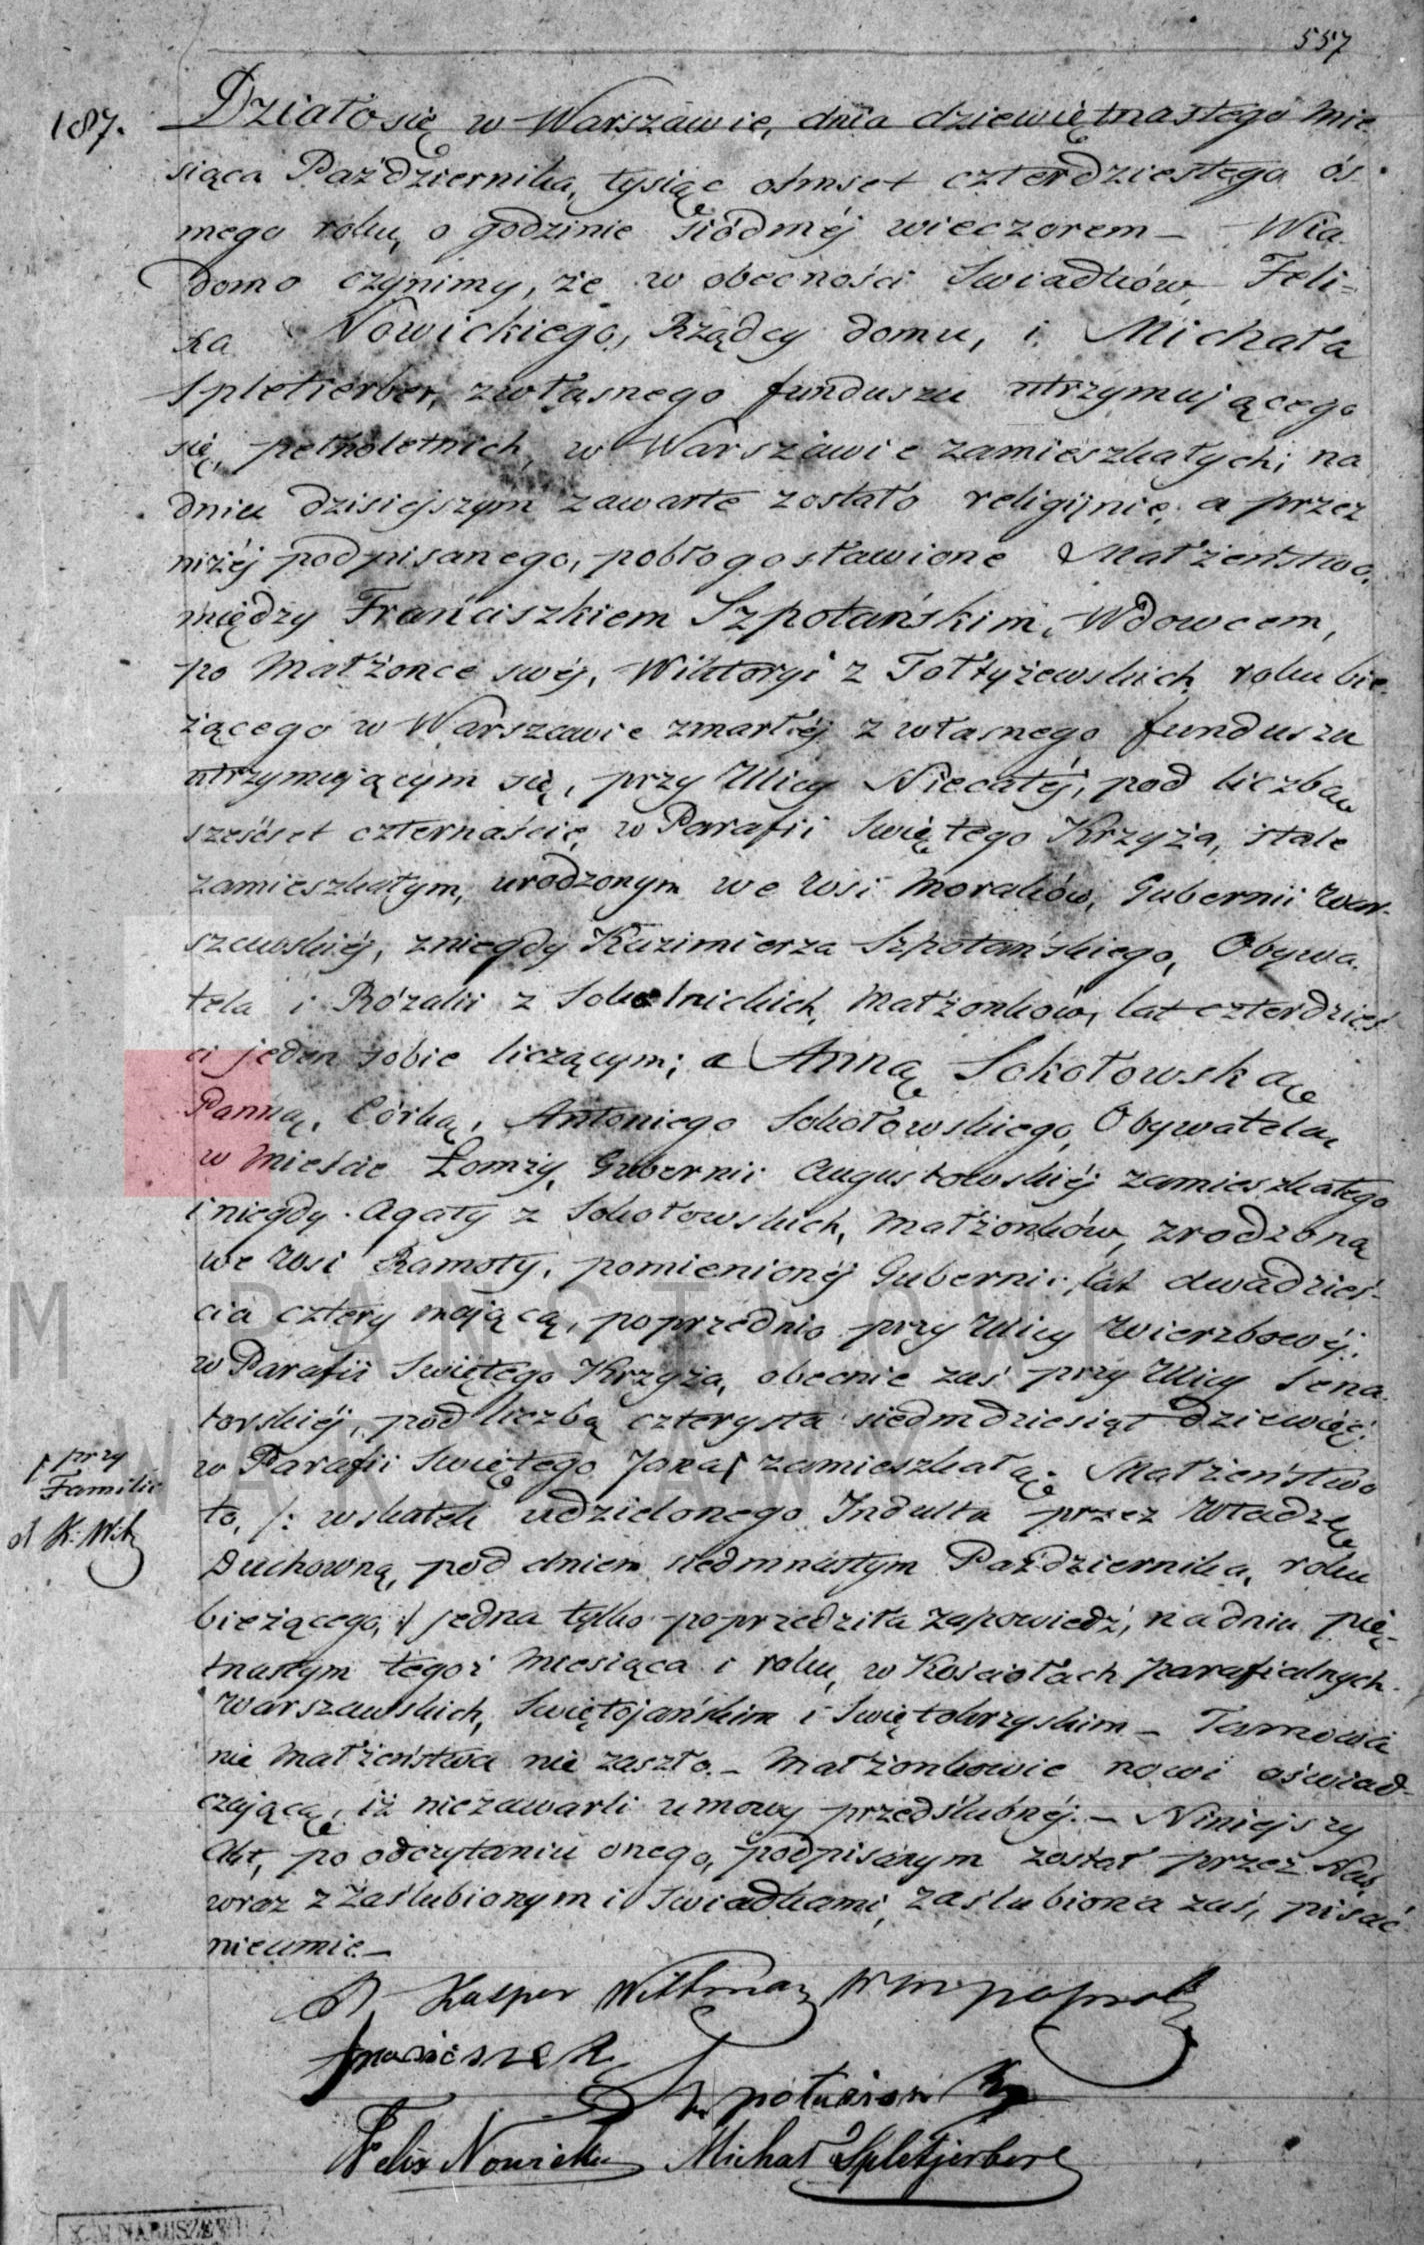 557
187.
Działo się w Warszawie, dnia dziewiętnastego Mie
siąca Października, tysiąc ośmset czterdziestego ós
mego roku, o godzinie siódméj wieczorem – Wia
domo czynimy, że w obecności Swiadków, Feli=
xa Nowickiego, Rządcy domu, i Michała
Spletierber, z własnego funduszu utrzymującego
się, pełnoletnich, w Warszawie zamieszkałych; na
dniu dzisiejszym zawarte zostało religijnie, a przez
niżéj podpisanego, pobłogosławione Małżeństwo,
między Franciszkiem Szpotańskim, Wdowcem,
po Małżonce swéj, Wiktoryi z Tołłyżewskich, roku bie
żącego w Warszawie zmarłéj z własnego funduszu
utrzymującym się, przy Ulicy Niecałéj, pod liczbą
sześćset czternaście, w Parafii Swiętego Krzyża, stale
zamieszkałym, urodzonym we wsi Moraków, Gubernii War-
szawskiéj, z niegdy Kazimierza Szpotańskiego, Obywa
tela i Rózalii z Sokolnickich, Małżonków, lat czterdzieś
ci jeden sobie liczącym; a Anną Sokołowską
Panną, Córką, Antoniego Sokołowskiego, Obywatela
w Mieście Łomży, Gubernii Augustowskiéj zamieszkałego
i niegdy Agaty z Sokołowskich, Małżonków, zrodzoną
we wsi Ramoty, pomienionéj Gubernii, lat dwadzieś-
cia cztery mającą, poprzednio przy Ulicy Wierzbowéj,
w Parafii Swiętego Krzyża, obecnie zaś przy Ulicy Sena
torskiéj, pod liczbą czterysta siedmdziesiąt dziewięć,
w Parafii Swiętego Jana zamieszkałą. Małżeństwo
przy
Familii
K. Witt
to, /: w skutek udzielonego Indultu przez Władzę
Duchowną, pod dniem siedmnastym Października, roku
bieżącego, :/ jedna tylko poprzedziła zapowiedź, na dniu pię-
tnastym tegoż Miesiąca i roku, w Kościołach parafialnych
Warszawskich, Swiętojańskim i Swiętokrzyskim – Tamowa
nie Małżeństwa nie zaszło. – Małżonkowie nowi oświad-
czają, iż nie zawarli umowy przedślubnéj. – Niniejszy
Akt, po odczytaniu onego, podpisanym został przez Nas,
wraz z Zaślubionym i Swiadkami, zaślubiona zaś, pisać
nieumie –
X. Kasper
Franciszek
Szpotański
Felix Nowicki Michał Spletjerber
M PAŃSTWOWE
WARSZAWY